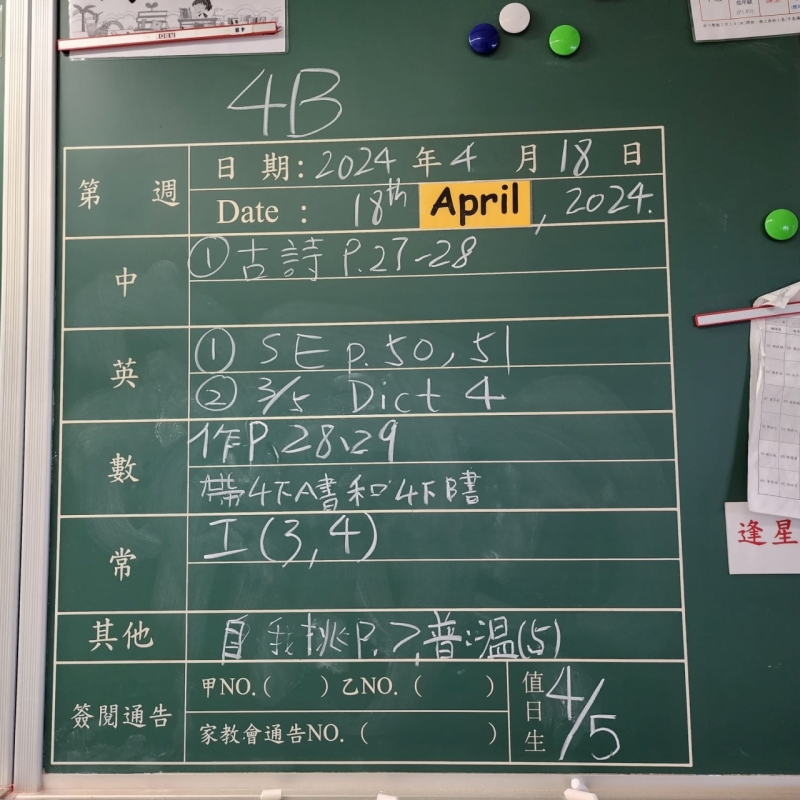 4B
第 週
日 期: 2024 年 4 月 18 日
Date : 18th April, 2024.
中
① 古詩 P.27-28
英
① SE p.50, 51
② 3/5 Dict 4
數
作P.28、29
帶4下A書和4下B書
常
工(3,4)
其他
自我挑P.7,普:温(5)
簽閱通告
甲NO.( ) 乙NO. ( )
家教會通告NO. ( )
值日生
4/5
逢星